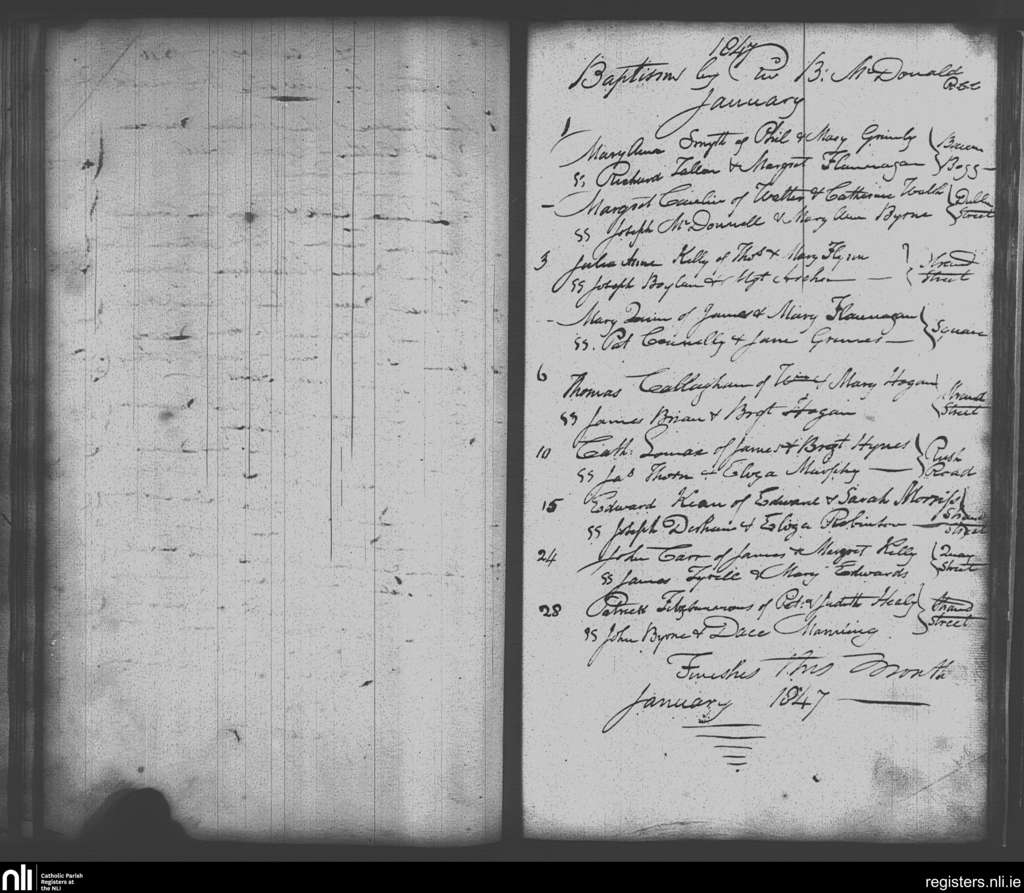 1847
Baptisms by Rev B: McDonald
January
1
Mary Anne Smyth of Phil & Mary Grimly
ss, Richard & Margret Flannagan
Bogg
- Margret of Walter & Catherine
ss Joseph McDonnell & Mary Ann Byrne
Street
3 Julia Anne Kelly of Thos & Mary Flynn
ss Joseph Boylan & Mgt Archer
Strand
Street
- Mary Quinn of James & Mary Flannagan
ss. Pat Connelly & Jane Grimes
Square
6
Thomas Callaghan of & Mary Hogan
ss James Brian & Brgt Hogan
Strand
Street
10 Cath: of James & Brgt Hynes
ss Jas Thorn & Eliza Murphy
Rush
Road
15 Edward Kean of Edward & Sarah
ss Joseph & Eliza Robinson
Strand
Street
24 John Carr of James & Margret Kelly
ss James Tyrell & Mary Edwards
Quay
Street
28 Patrick of Pat: & Judith Healy
ss John Byrne & Manning
Strand
Street
Finishes this Month
January 1847
nli
Catholic Parish
Registers at
the NLI
registers.nli.ie